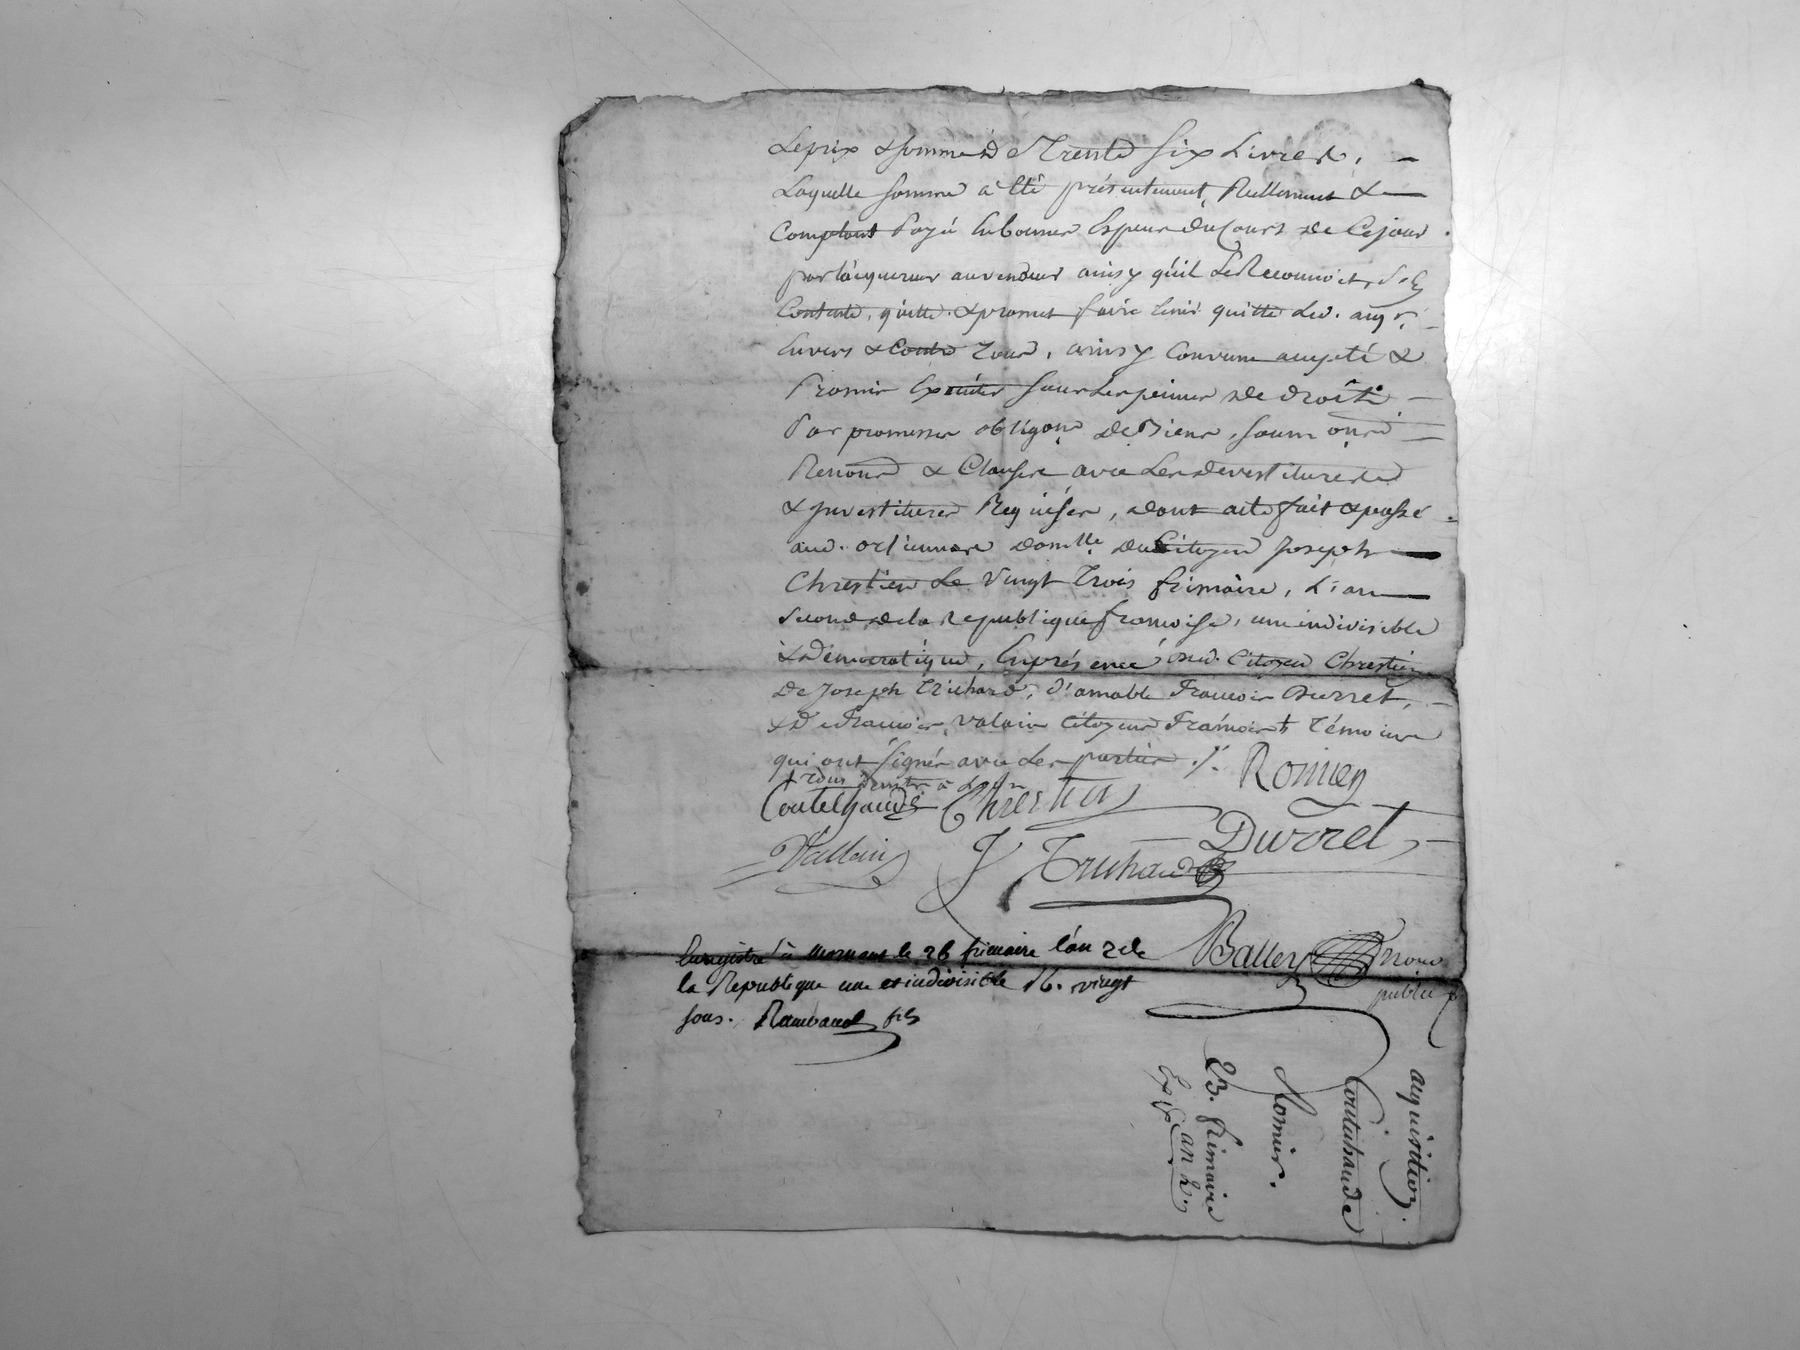 Le prix & somme de Trente Six Livres, —
Laquelle somme a été présentement, Réellement & —
Comptant Payé En bonnes Espèces du Cours de Ce jour
par l'acquereur au vendeur ainsy qu'il Le Reconnoit, s'en
Contente, quitte & promet faire tenir quitte led. acq.r
Envers & Contre Tous, ainsy Convenu accepté &
Promis Exécuter sous Les peines de droit —
Par promesses obligons De Biens, soum ons
Renons & Clauses avec Les devestitures
& investitures Requises, dont acte fait & passé
aud. orliennas domlle du Citoyen Joseph —
Chrestien Le Vingt Trois frimaire, L'an —
Second de la Republique françoise, une indivisible
& Démocratique, En présence dud. Citoyen Chrestien
De Joseph Truhard, d'amable François Durret,
& De François Valain Citoyens François + Témoins
qui ont signés avec Les parties ./.
+ Tous demts à
Romier
Coutelhaude Chrestien
Durret
Vallain J Truhaud
Enregistré à mornant le 26 frimaire l'an 2 de
la Republique une et indivisible R. vingt
sous. Rambaud fils
Balley nore
public
acquisition.
Coutuhaude
Romier.
23. frimaire
an 2.